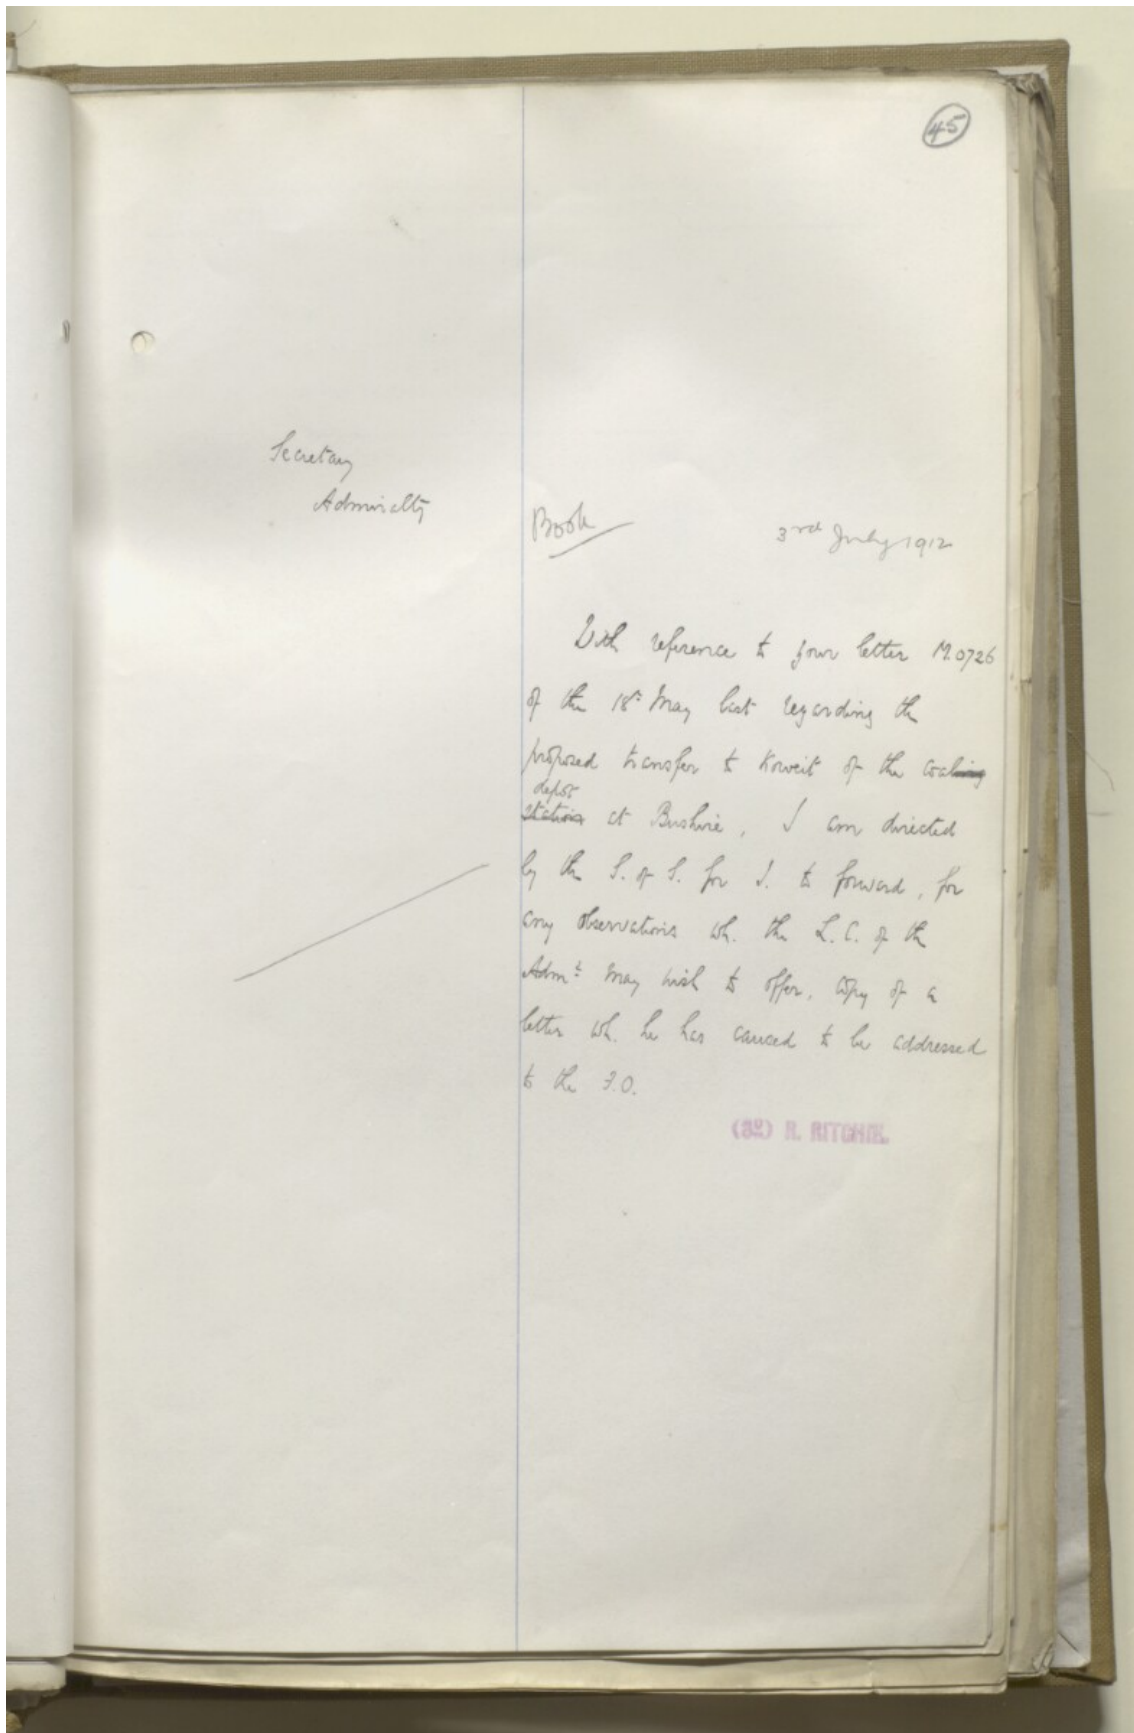 45
Secretary
Admiralty
Book
3rd July 1912
With reference to your letter M.0726
of the 18th May last regarding the
proposed transfer to Koweit of the coaling
depôt
station at Bushire, I am directed
by the S. of S. for I. to forward, for
any observations wh. the L.C. of the
Admt may wish to offer, copy of a
letter wh. he has caused to be addressed
to the F.O.
(Sd) R. RITCHIE.